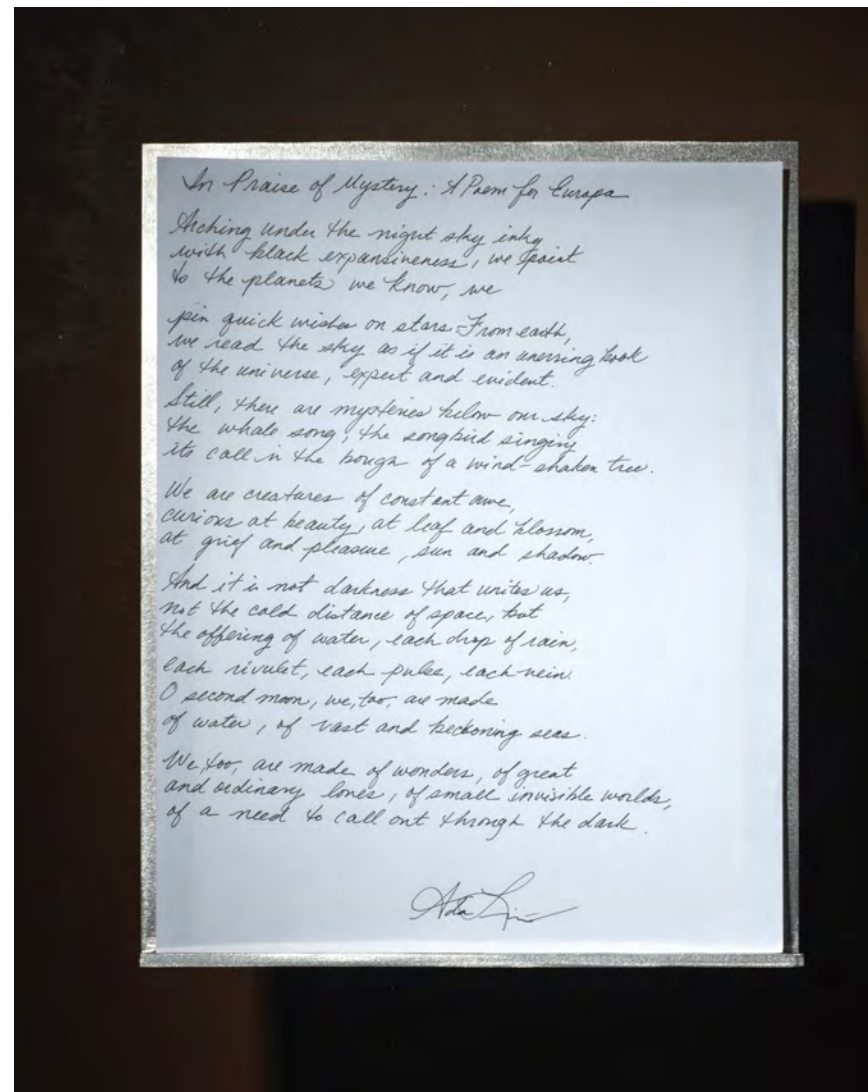 In Praise of Mystery: A Poem for Europa
Arching under the night sky inky
with black expansiveness, we point
to the planets we know, we
pin quick wishes on stars. From earth,
we read the sky as if it is an unerring book
of the universe, expert and evident.
Still, there are mysteries below our sky:
the whale song, the songbird singing
its call in the bough of a wind-shaken tree.
We are creatures of constant awe,
curious at beauty, at leaf and blossom,
at grief and pleasure, sun and shadow.
And it is not darkness that unites us,
not the cold distance of space, but
the offering of water, each drop of rain,
each rivulet, each pulse, each vein.
O second moon, we, too, are made
of water, of vast and beckoning seas.
We, too, are made of wonders, of great
and ordinary loves, of small invisible worlds,
of a need to call out through the dark.
Ada Limón